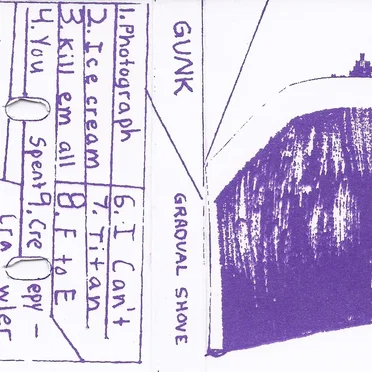 GUNK
GRADUAL SHOVE
1. Photograph
2. Ice cream
3. Kill em all
4. You Spent
6. I Can't
7. Titan
8. F to E
9. Creepy -
Crawler